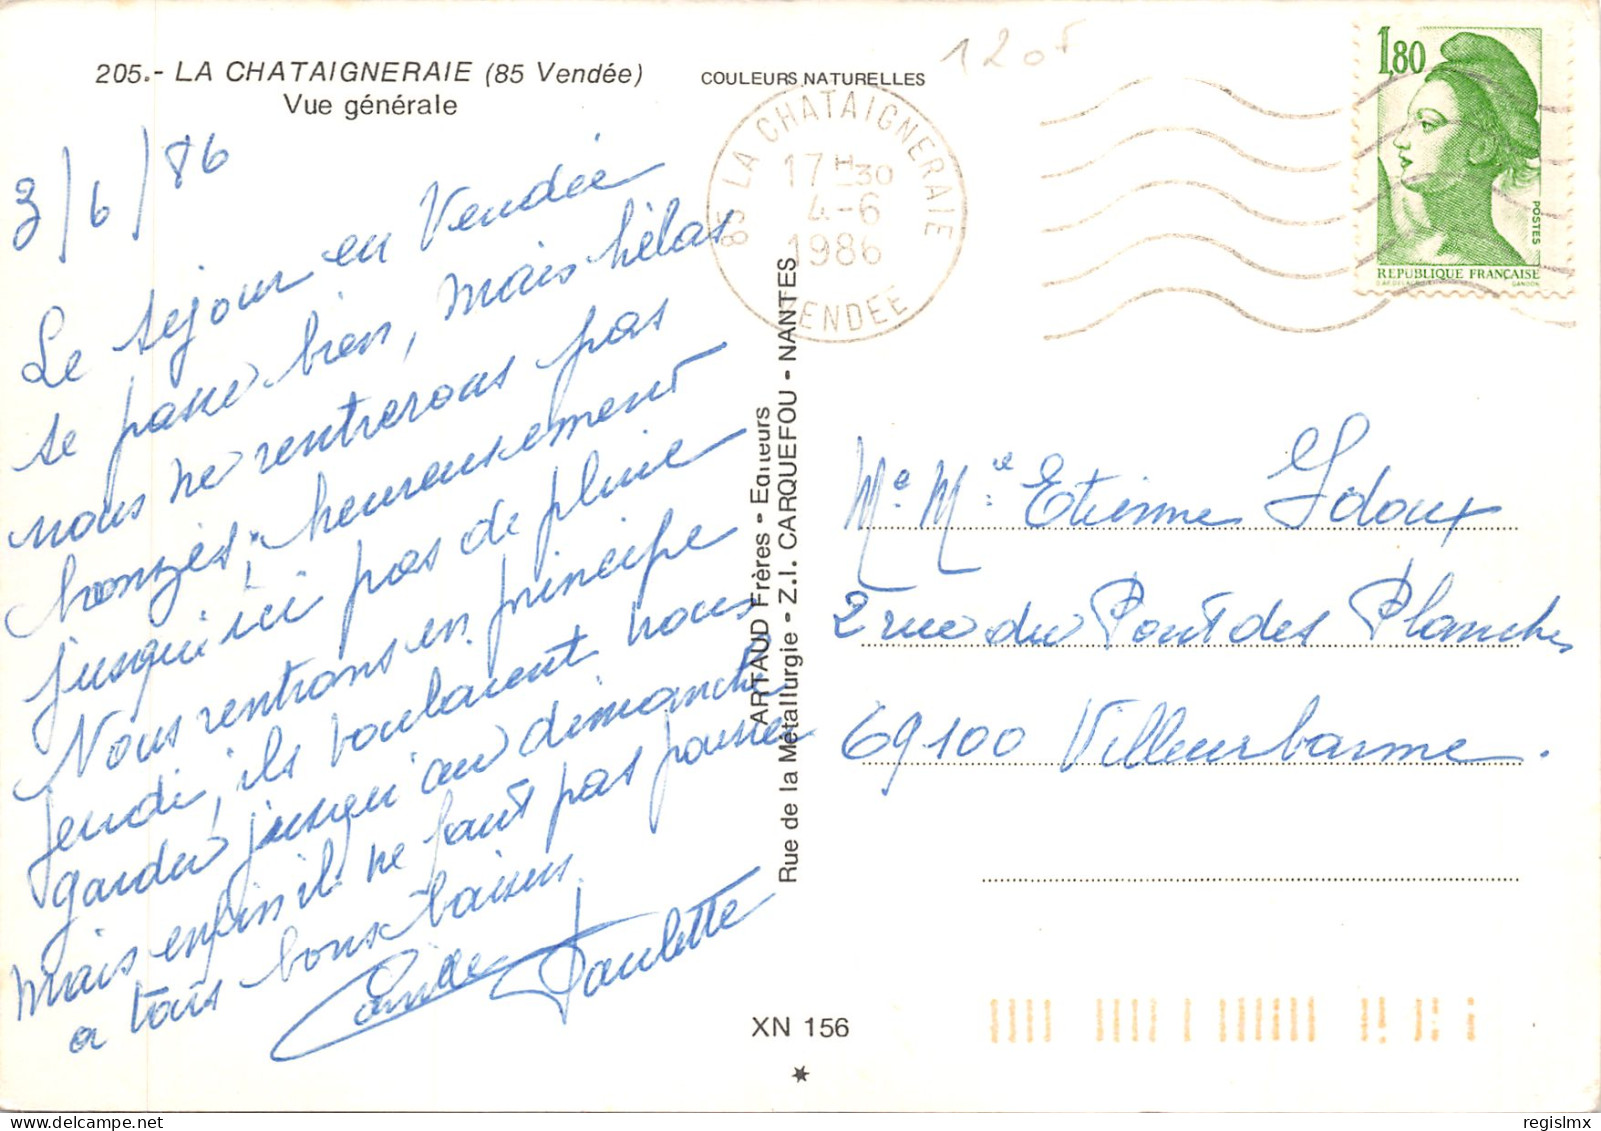 205.- LA CHATAIGNERAIE (85 Vendée)
Vue générale
COULEURS NATURELLES
120F
3/6/86
Le séjour en Vendée
se passe bien, mais hélas
nous ne rentrerons pas
bronzés; heureusement
jusqu'ici pas de pluie
Nous rentrons en principe
jeudi, ils voulaient nous
garder jusqu'au dimanche
mais enfin il ne faut pas pousser
a tous bons baisers.
Camille Paulette
85 LA CHATAIGNERAIE
17H30
4-6
1986
VENDEE
1,80
POSTES
REPUBLIQUE FRANÇAISE
GANDON
ARTAUD Frères - Editeurs
Rue de la Métallurgie - Z.I. CARQUEFOU - NANTES
Me Mle Etienne Idoux
2 rue du Pont des Planches
69100 Villeurbanne.
XN 156
regislmx